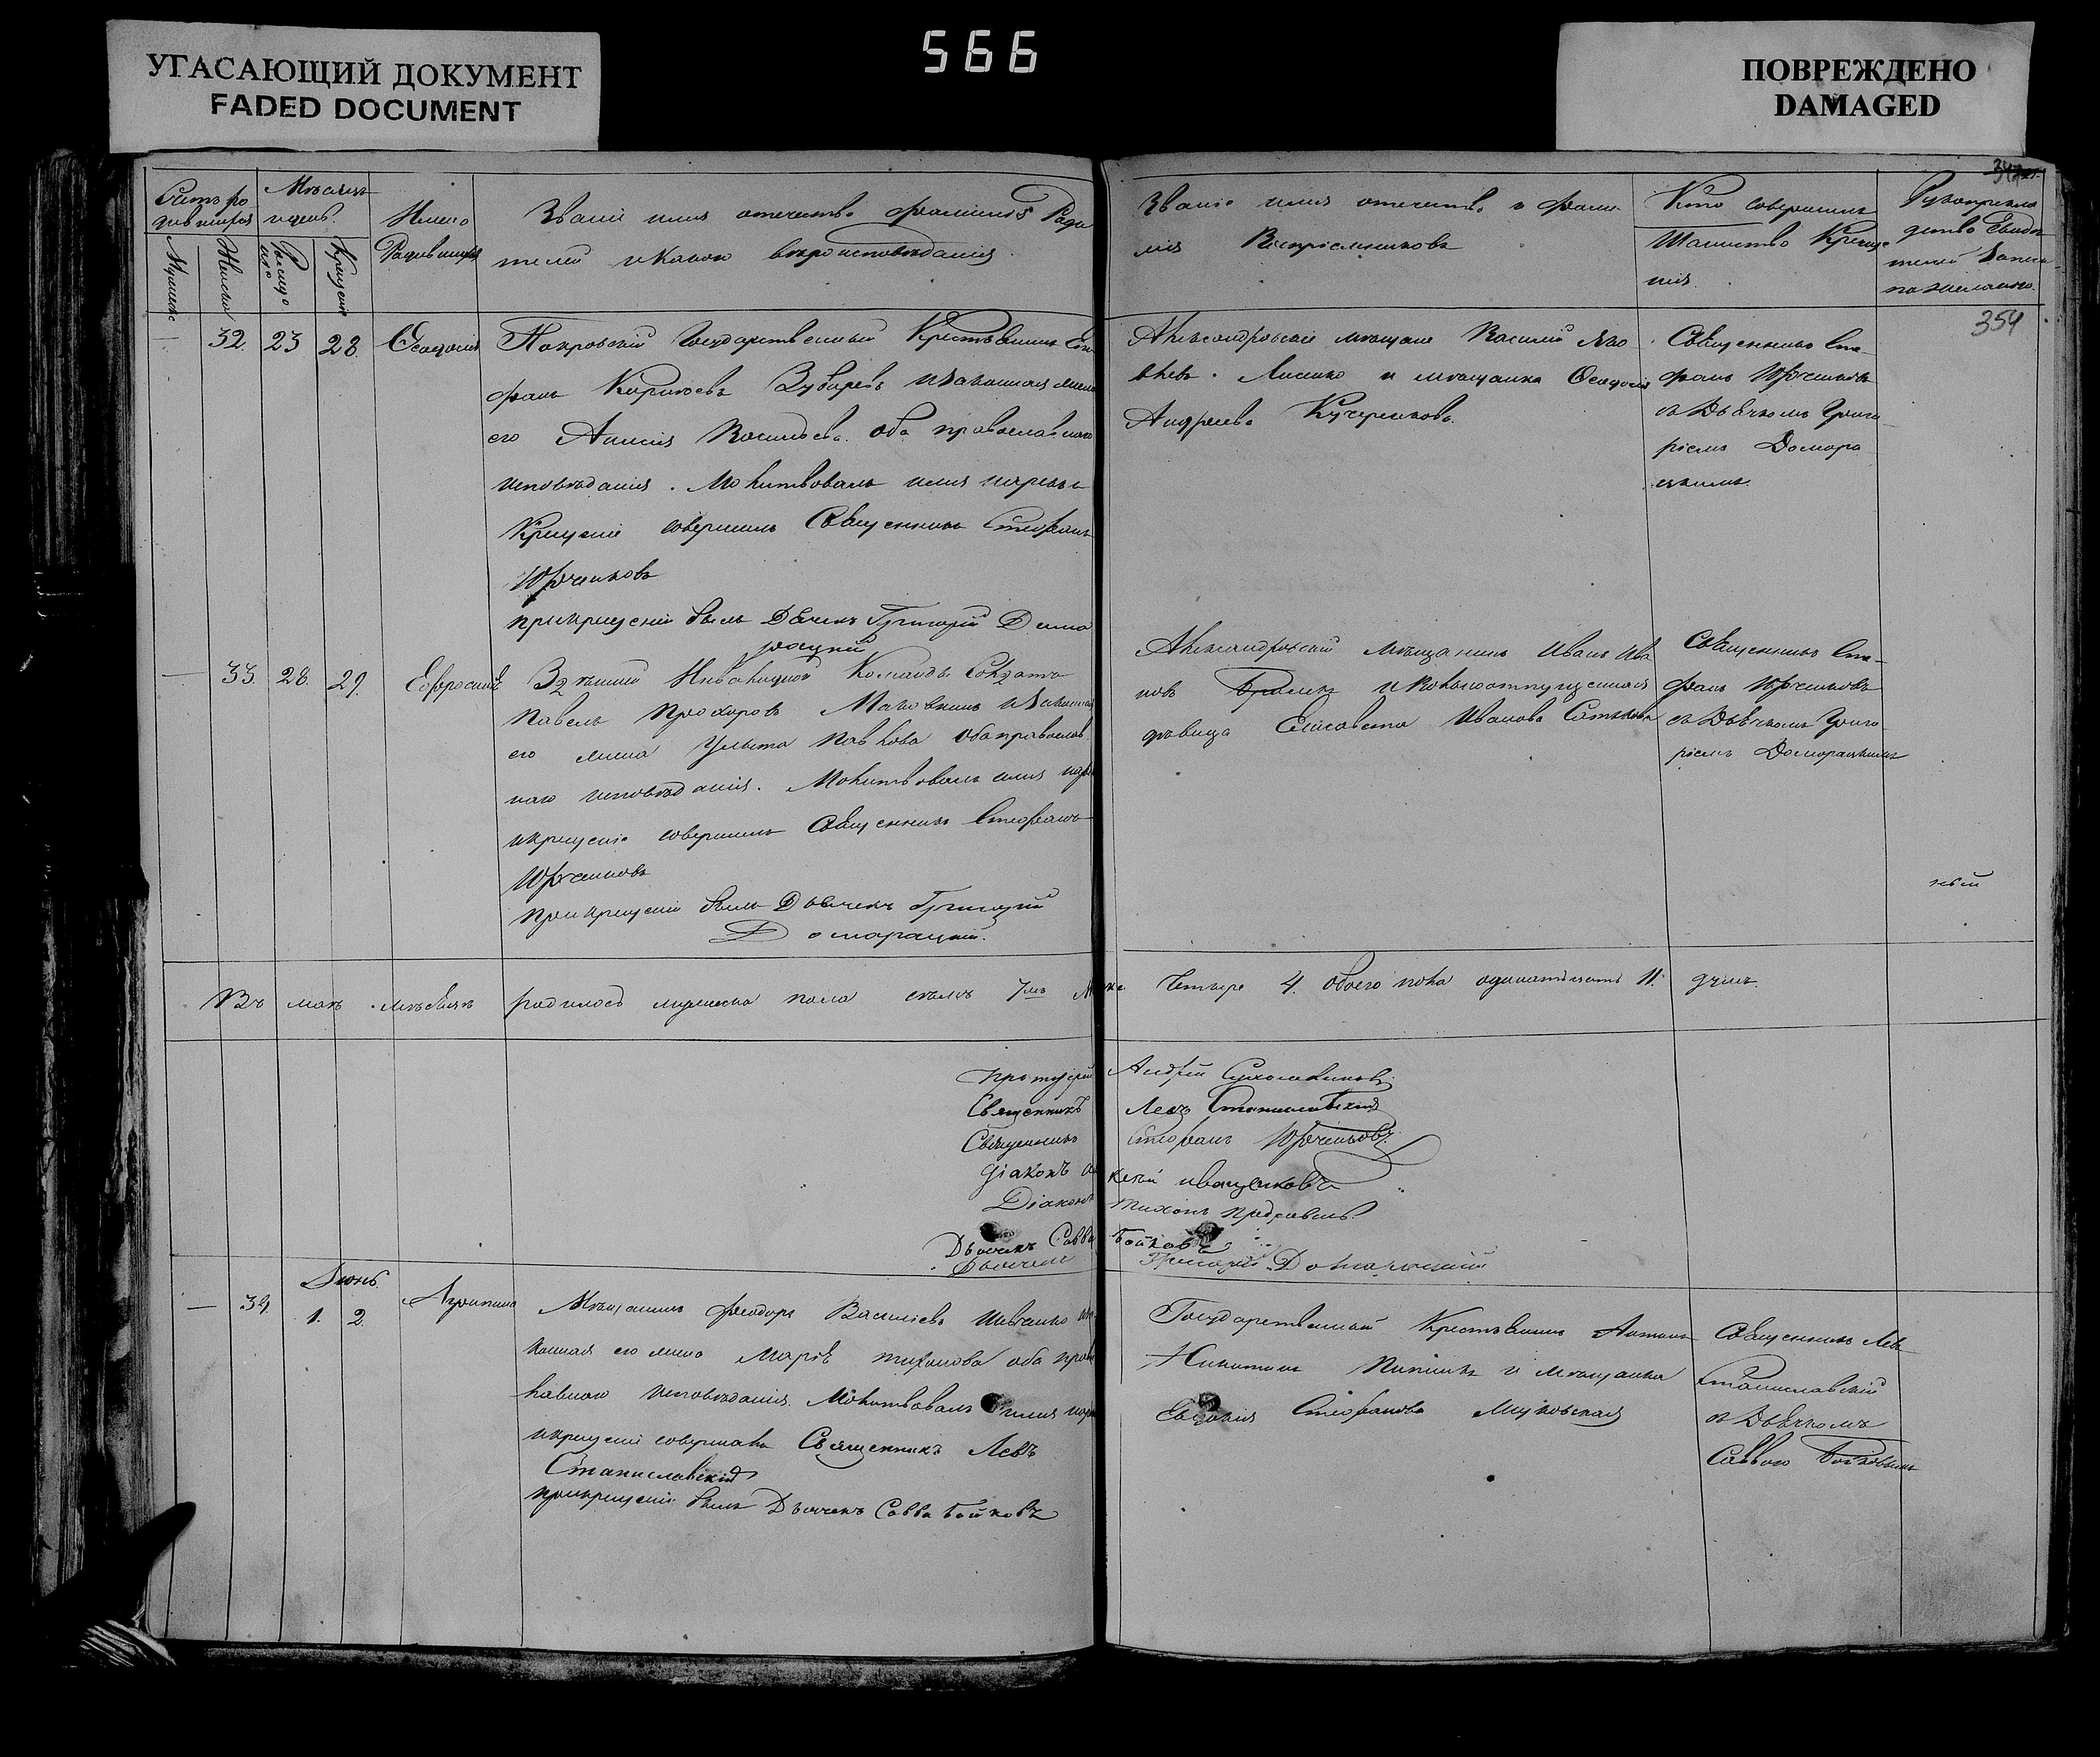 УГАСАЮЩИЙ ДОКУМЕНТ
FADED DOCUMENT
566
ПОВРЕЖДЕНО
DAMAGED
Счетъ ро
дившихся
Мѣсяцъ
и день
Мужеска
Женска
Рожде
нія
Крещенія
Имена
Родившихся
Званіе имя отечество фамилія Роди
телей и какого вѣроисповѣданія
Званіе имя отечество и фами
лія Воспріемниковъ
Кто совершилъ
Таинство Креще
нія
Рукоприкла
дство Свидѣ
телей записи
по желанію
354
— 32. 23 28. Ѳеодосія
Покровскій Государственный Крестьянинъ
фанъ Зубаревъ и законная жена
его Анисія Васильева оба православнаго
исповѣданія. Молитвовалъ имя нарекъ и
Крещеніе совершилъ Священникъ Стефанъ
Юрченковъ
при крещеніи былъ Дьячекъ Григорій Дома
рацкій
Александровскіе мѣщане Василій Яко
влевъ Лисенко и мѣщанка Ѳеодосія
Андреева Кучеренкова.
Священникъ Сте-
фанъ Юрченковъ
съ Дьячкомъ Григо
ріемъ Домара
цкимъ
— 33. 28. 29. Евфросинія
Здѣшней Инвалидной Команды Солдатъ
Павелъ Прохоровъ и законная
его жена Ульяна Павлова оба православ
наго исповѣданія. Молитвовалъ имя нарекъ
и крещеніе совершилъ Священникъ Стефанъ
Юрченковъ
При крещеніи былъ Дьячекъ Григорій
Домарацкій.
Александровскій мѣщанинъ Иванъ Ива
новъ и вольноотпущенная
дѣвица Елисавета Иванова
Священникъ Сте-
фанъ Юрченковъ
съ Дьячкомъ Григо
ріемъ Домарацкимъ
Въ маѣ мѣсяцѣ родилось мужеска пола семь 7мь Женска Четыре 4. обоего пола одинадцать 11. душъ.
Протоіерей Андрей
Священникъ Левъ Станиславскій
Священникъ Стефанъ Юрченковъ.
Діаконъ Иващенковъ
Діаконъ Тихонъ
Дьячекъ Савва Бойковъ
Дьячекъ Григорій Домарацкій
Іюнь.
— 34. 1. 2. Агрипина
Мѣщанинъ Феодоръ Василіевъ Шевченко и за
конная его жена Марія Тихонова оба право
славнаго исповѣданія. Молитвовалъ имя нарекъ
и крещеніе совершалъ Священникъ Левъ
Станиславскій
при крещеніи былъ Дьячекъ Савва Бойковъ
Государственный Крестьянинъ Антонъ
Никитинъ и мѣщанка
Евдокія Стефанова
Священникъ Левъ
Станиславскій
съ Дьячкомъ
Саввою Бойковымъ